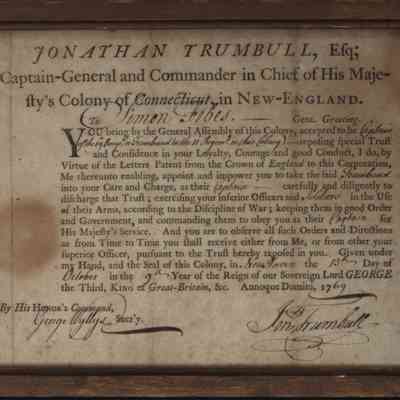 JONATHAN TRUMBULL, Esq;
Captain-General and Commander in Chief of His Maje-
sty's Colony of Connecticut, in NEW-ENGLAND.
To Simeon Gent. Greeting.
YOU being by the General Assembly of this Colony, accepted to be Captain
of the Company or Trainband in the Regiment in this Colony; reposing special Trust
and Confidence in your Loyalty, Courage and good Conduct, I do, by
Virtue of the Letters Patent from the Crown of England to this Corporation,
Me thereunto enabling, appoint and impower you to take the said Trainband
into your Care and Charge, as their Captain carefully and diligently to
discharge that Trust; exercising your inferior Officers and Soldiers in the Use
of their Arms, according to the Discipline of War; keeping them in good Order
and Government, and commanding them to obey you as their Captain for
His Majesty's Service. And you are to observe all such Orders and Directions
as from Time to Time you shall receive either from Me, or from other your
superior Officer, pursuant to the Trust hereby reposed in you. Given under
my Hand, and the Seal of this Colony, in New Haven the Day of
October in the 9th Year of the Reign of our Sovereign Lord GEORGE
the Third, KING of Great-Britain, &c. Annoque Domini, 1769
By His HONOR'S Command,
George Wyllys Secr'y.
Jonth Trumbull